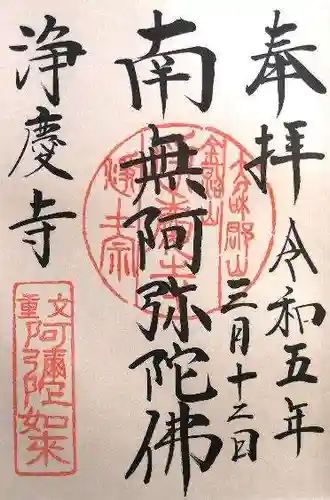 奉拝
令和五年
三月十二日
南無阿弥陀佛
浄慶寺
重文
阿彌陀如来
大和郡山
浄土宗